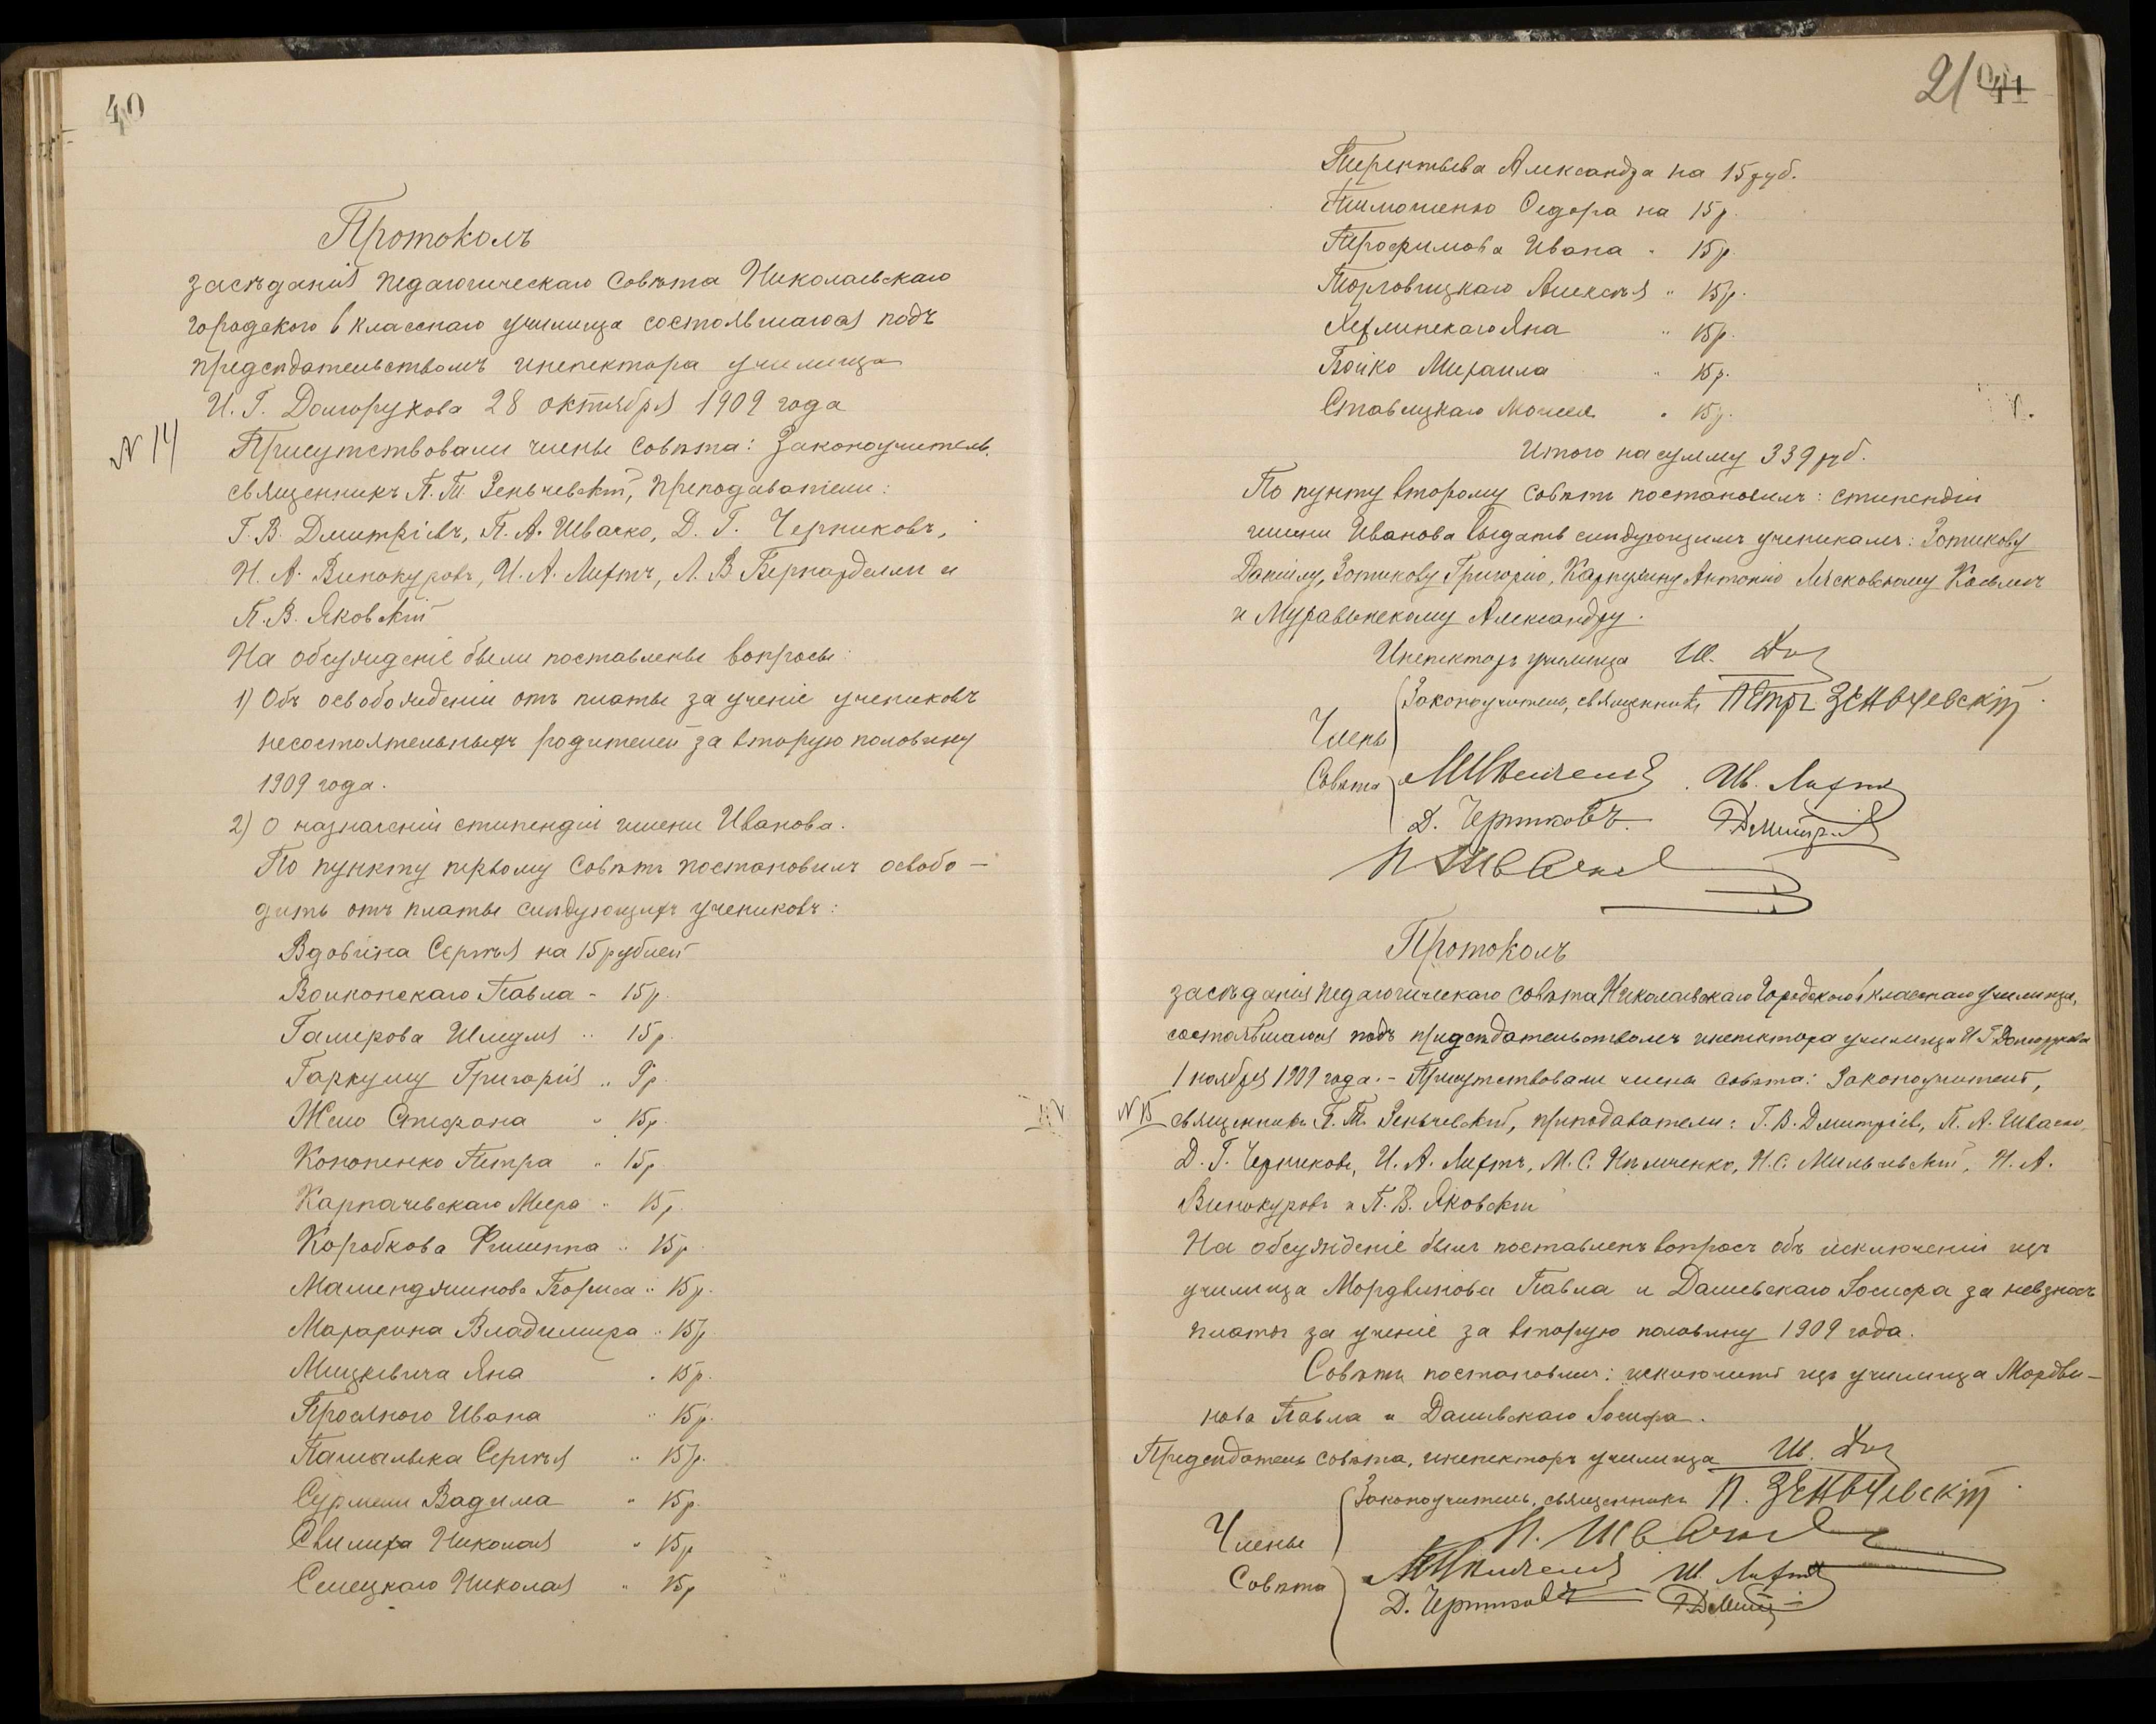 40
Протоколъ
засѣданія педагогическаго совѣта Николаевскаго
городского 6 класснаго училища состоявшагося подъ
предсѣдательствомъ инспектора училища
И. Г. Долгорукова 28 октября 1909 года
№ 14
Присутствовали члены совѣта: Законоучитель,
священникъ П. Т. Зеньчевскій, преподаватели:
Г. В. Дмитріевъ, П. А. Швачко, Д. Г. Черниковъ,
Н. А. Винокуровъ, И. А. Лифтъ, Л. В. Бернарделли и
П. В. Яковскій
На обсужденіе были поставлены вопросы:
1) Объ освобожденіи отъ платы за ученіе учениковъ
несостоятельныхъ родителей за вторую половину
1909 года.
2) О назначеніи стипендіи имени Иванова.
По пункту первому совѣтъ постановилъ освобо-
дить отъ платы слѣдующихъ учениковъ:
Вдовина Сергѣя на 15 рублей
Волконскаго Павла - 15 р.
Галиерова Шмуля " 15 р.
Гаркушу Григорія " 9 р.
Жело Стефана " 15 р.
Кононенко Петра " 15 р.
Карпачевскаго Меера " 15 р.
Коробкова Филиппа " 15 р.
Бориса " 15 р.
Марарина Владимира " 15 р.
Мицкевича Яна " 15 р.
Просяного Ивана " 15 р.
Сергѣя " 15 р.
Сурмели Вадима " 15 р.
Николая " 15 р
Селецкаго Николая " 15 р
21 41
Терентьева Александра на 15 руб.
Тимошенко Федора на 15 р.
Трофимова Ивана " 15 р.
Торговицкаго Алексѣя " 15 р.
Яна " 15 р.
Бойко Михаила " 15 р.
Ставицкаго Мошея " 15 р.
Итого на сумму 339 руб.
По пункту второму совѣтъ постановилъ: стипендіи
имени Иванова выдать слѣдующимъ ученикамъ: Зотикову
Даніилу, Зотикову Григорію, Карпухину Антонію Лясковскому Казьмѣ
и Муравьнскому Александру.
Инспекторъ училища И. Дол
Законоучитель, священникъ Петръ Зеньчевскій
Члены
Совѣта
М. Ильченко. Ив. Лифтъ
Д. Черниковъ. Г. Дмитріев
П. Швачко
Протоколъ
засѣданія педагогическаго совѣта Николаевскаго Городского 6 класснаго училища,
состоявшагося подъ предсѣдательствомъ инспектора училища И. Г. Долгорукова
1 ноября 1909 года. - Присутствовали члены совѣта: Законоучитель,
№ 15
священникъ П. Т. Зеньчевскій, преподаватели: Г. В. Дмитріев, П. А. Швачко,
Д. Г. Черниковъ, И. А. Лифтъ, М. С. Ильченко, Н. С. Мильчевскій, Н. А.
Винокуровъ и П. В. Яковскій
На обсужденіе былъ поставленъ вопросъ объ исключеніи изъ
училища Мордвинова Павла и Дашевскаго Іосифа за невзносъ
платы за ученіе за вторую половину 1909 года.
Совѣтъ постановилъ: исключить изъ училища Мордви-
нова Павла и Дашевскаго Іосифа.
Предсѣдатель совѣта, инспекторъ училища И. Дол
Законоучитель, священникъ П. Зеньчевскій
Члены
Совѣта
П. Швачко
М. Ильченко И. Лифтъ
Д. Черниковъ Г. Дмит